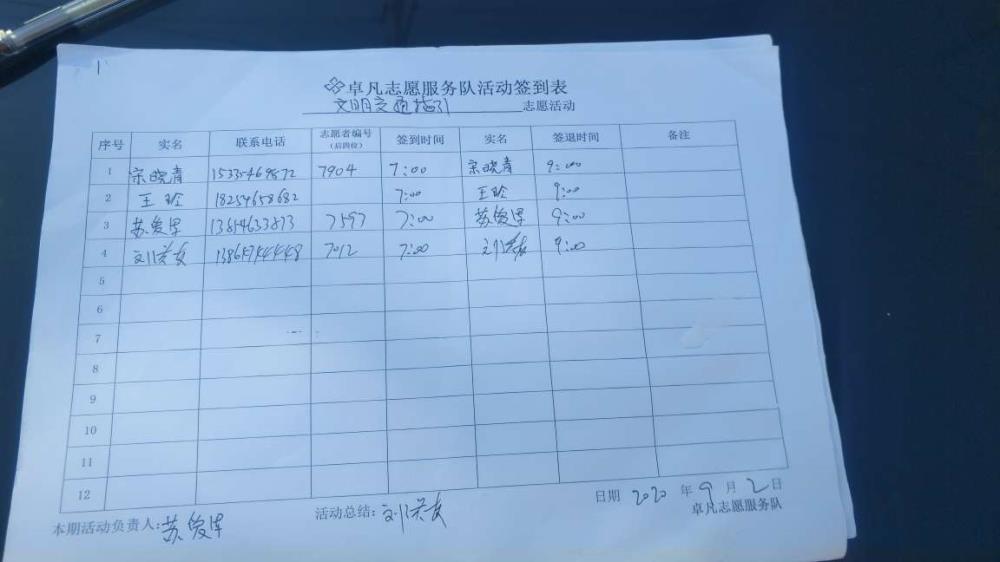 卓凡志愿服务队活动签到表
文明交通指引 志愿活动
序号 实名 联系电话 志愿者编号（后四位） 签到时间 实名 签退时间 备注
1 宋晓青 15335469872 7904 7:00 宋晓青 9:00
2 王玲 18254658682 7:00 王玲 9:00
3 苏俊 7597 7:00 苏俊 9:00
4 刘 7012 7:00 刘 9:00
5
6
7
8
9
10
11
12
日期 2020 年 9 月 2 日
本期活动负责人：苏俊 活动总结：刘 卓凡志愿服务队